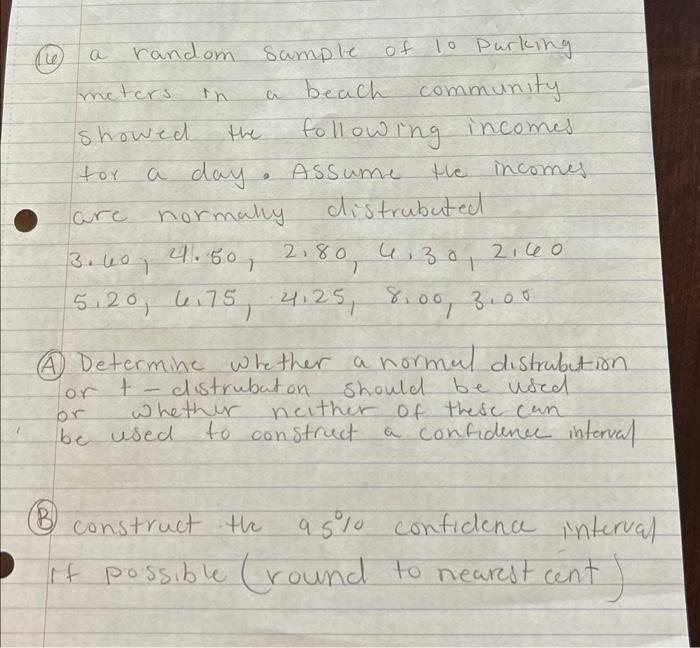 16 a random sample of 10 parking
meters in a beach community
showed the following incomes
for a day. Assume the incomes
are normally distrubuted
3.60, 4.50, 2.80, 6.30, 2.60
5.20, 6.75, 4.25, 8.00, 3.00
A Determine whether a normal distrubution
or t-distrubuton should be used
or whether neither of these can
be used to construct a confidence interval
B construct the 95% confidence interval
if possible (round to nearest cent)